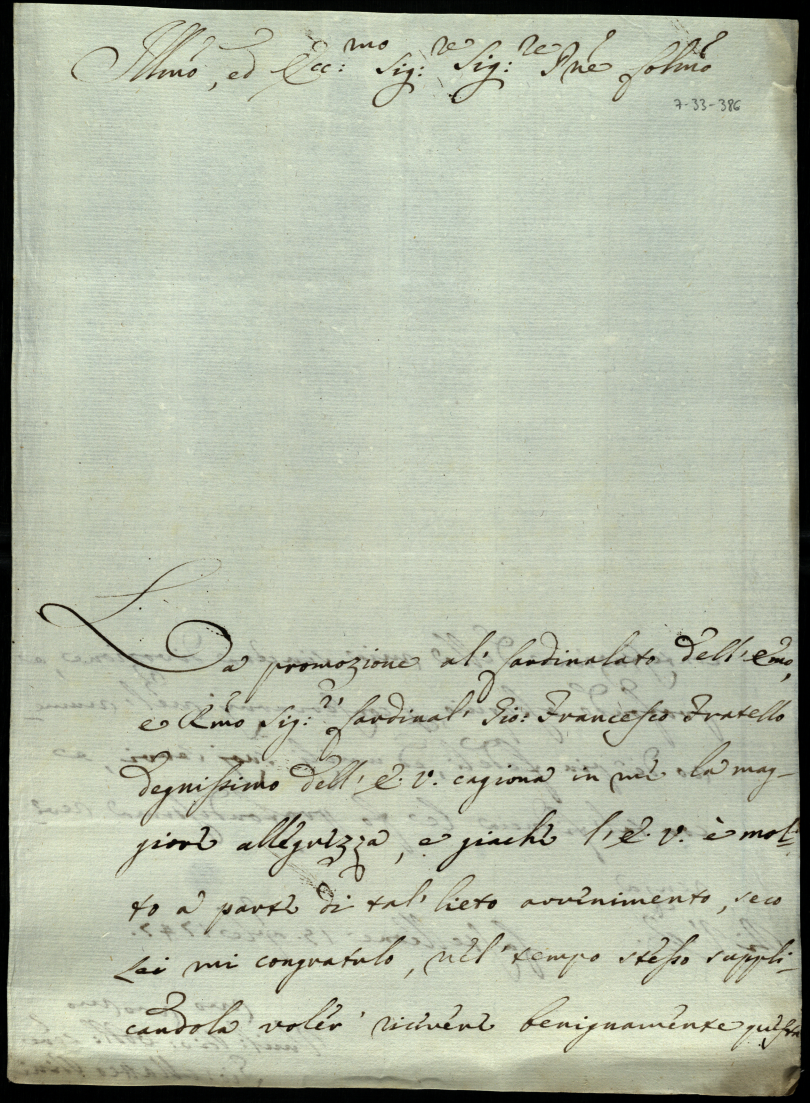 Illmo, ed Ecc:mo Sig:re Sig:re Pne Colmo
7-33-386
La promozione al' Cardinalato dell' Emo,
e Rmo Sig:r Cardinal' Gio: Francesco Fratello
degnissimo dell' E: V: cagiona in me la mag-
giore allegrezza, e giache l' E: V: è mol-
to a parte di tal' lieto avvenimento, seco
Lei mi congratulo, nel' tempo stesso suppli-
candola voler' ricevere benignamente questa